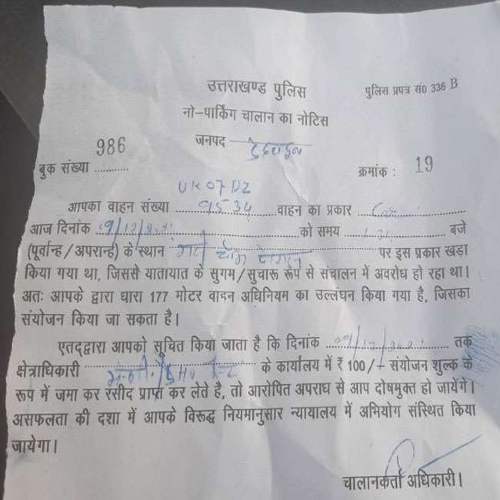 उत्तराखण्ड पुलिस
पुलिस प्रपत्र सं0 336 B
नो-पार्किंग चालान का नोटिस
जनपद देहरादून
बुक संख्या 986
क्रमांक : 19
UK07DZ
आपका वाहन संख्या 9534 वाहन का प्रकार Car
आज दिनांक को समय बजे
(पूर्वान्ह / अपरान्ह) के स्थान पर इस प्रकार खड़ा
किया गया था, जिससे यातायात के सुगम/सुचारू रूप से संचालन में अवरोध हो रहा था।
अतः आपके द्वारा धारा 177 मोटर वाहन अधिनियम का उल्लंघन किया गया है, जिसका
संयोजन किया जा सकता है।
एतद्द्वारा आपको सुचित किया जाता है कि दिनांक तक
क्षेत्राधिकारी के कार्यालय में ₹ 100/- संयोजन शुल्क के
रूप में जमा कर रसीद प्राप्त कर लेते है, तो आरोपित अपराध से आप दोषमुक्त हो जायेंगे।
असफलता की दशा में आपके विरूद्ध नियमानुसार न्यायालय में अभियोग संस्थित किया
जायेगा।
चालानकर्ता अधिकारी।